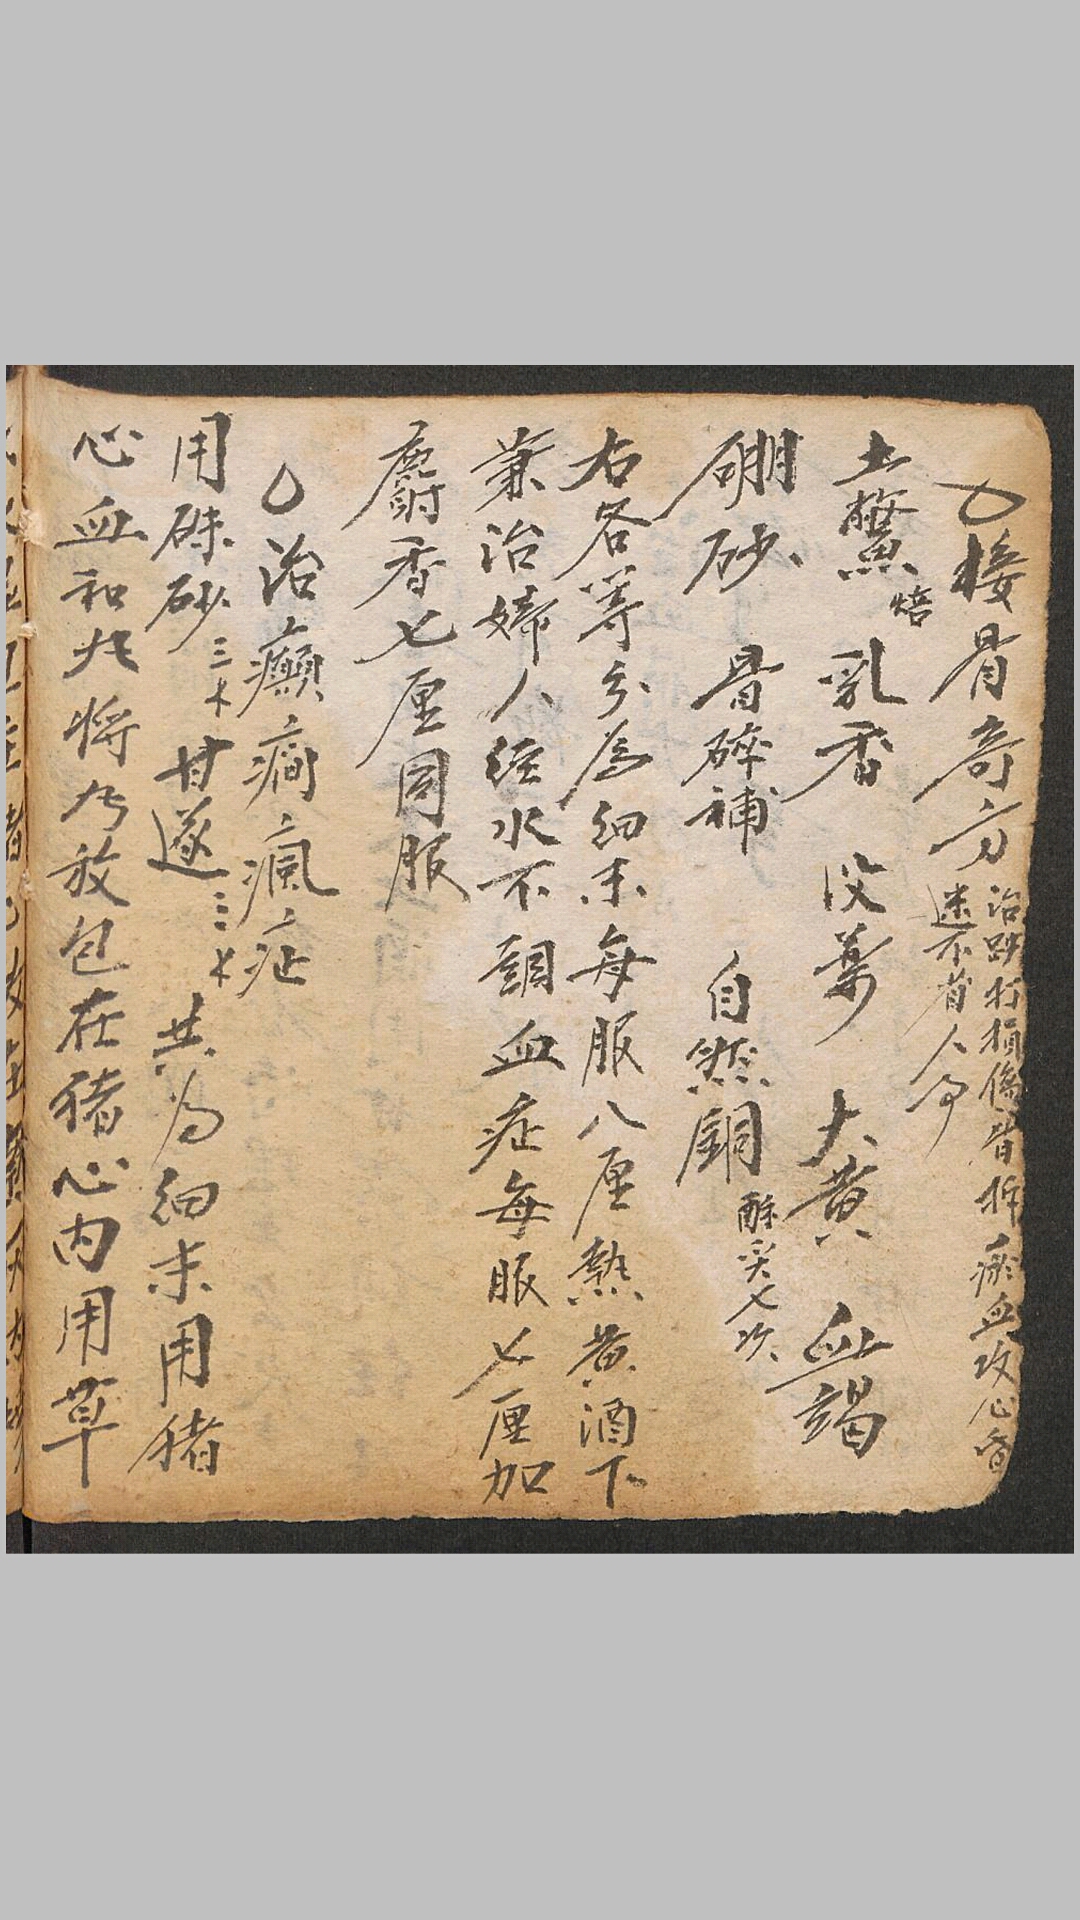 接骨奇方 治跌打損傷骨折瘀血攻心昏
迷不省人事
土鱉 焙 乳香 没藥 大黃 血竭
硼砂 骨碎補 自然銅 醋炙七次
右各等分為細末每服八厘熱黃酒下
兼治婦人經水不調血症每服七厘加
麝香七厘同服
治癲癇瘋症
用硃砂 三 甘遂 三 共为细末用猪
心血和 将 放包在猪心内用草